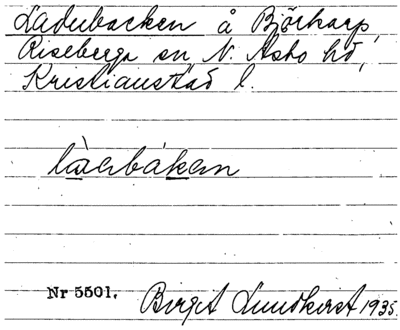 Ladubacken å Björkarp,
Riseberga sn, N. Åsbo hd,
Kristianstad l.
làerbákern
Nr 5501.
Birgit Lundkvist 1935.